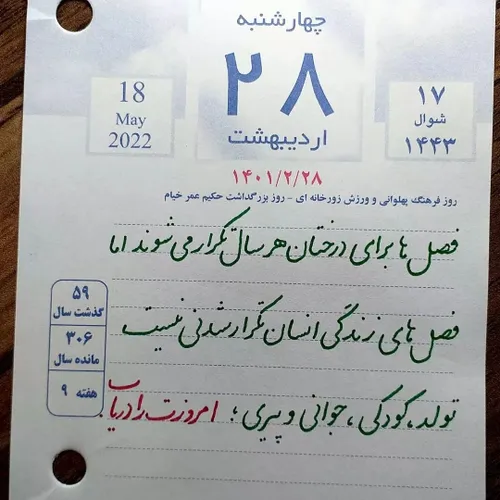 چهارشنبه
18
May
2022
۲۸
اردیبهشت
۱۷
شوال
۱۴۴۳
۱۴۰۱/۲/۲۸
روز فرهنگ پهلوانی و ورزش زورخانه ای - روز بزرگداشت حکیم عمر خیام
فصل ها برای درختان هر سال تکرار می شوند اما
فصل های زندگی انسان تکرار شدنی نیست
تولد، کودکی، جوانی و پیری؛ امروزت را دریاب.
۵۹
گذشت سال
۳۰۶
مانده سال
هفته ۹